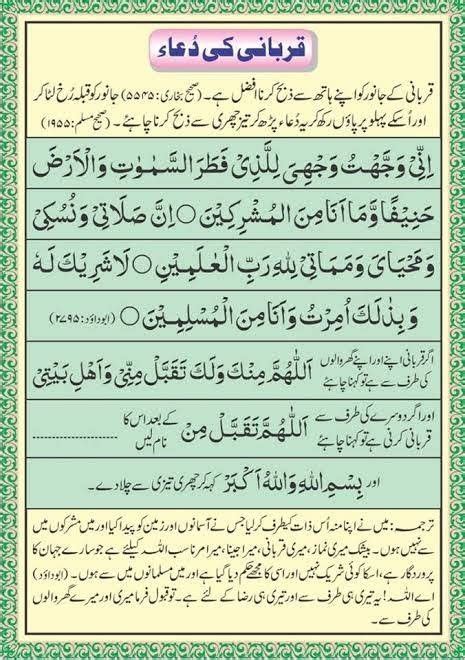 قربانی کی دُعاء
قربانی کے جانور کو اپنے ہاتھ سے ذبح کرنا افضل ہے۔ (صحیح بخاری: ۵۵۳۵) جانور کو قبلہ رُخ لٹا کر
اور اُسکے پہلو پر پاؤں رکھ کر یہ دُعاء پڑھ کر تیز چھری سے ذبح کرنا چاہئے۔ (صحیح مسلم: ۱۹۵۵)
اِنِّیْ وَجَّهْتُ وَجْهِیَ لِلَّذِیْ فَطَرَ السَّمٰوٰتِ وَالْاَرْضَ
حَنِیْفًا وَّمَا اَنَا مِنَ الْمُشْرِکِیْنَ ○ اِنَّ صَلَاتِیْ وَنُسُکِیْ
وَمَحْیَایَ وَمَمَاتِیْ لِلهِ رَبِّ الْعٰلَمِیْنَ ○ لَا شَرِیْكَ لَهٗ
وَبِذٰلِكَ اُمِرْتُ وَاَنَا مِنَ الْمُسْلِمِیْنَ ○ (ابوداؤد: ۲۷۹۵)
اگر قربانی اپنے اور اپنے گھر والوں کی طرف سے ہے تو کہنا چاہئے اَللّٰهُمَّ مِنْكَ وَلَكَ تَقَبَّلْ مِنِّیْ وَاَهْلِ بَیْتِیْ
اور اگر دوسرے کی طرف سے قربانی کرنی ہے تو کہنا چاہئے اَللّٰهُمَّ تَقَبَّلْ مِنْ کے بعد اس کا نام لیں ........................
اور بِسْمِ اللهِ وَاللهُ اَکْبَرْ کہہ کر چھری تیزی سے چلا دے۔
ترجمہ: میں نے اپنا منہ اُس ذات کیطرف کر لیا جس نے آسمانوں اور زمین کو پیدا کیا اور میں مشرکوں میں
سے نہیں ہوں۔ بیشک میری نماز، میری قربانی، میرا جینا، میرا مرنا سب اللہ کیلئے ہے جو سارے جہان کا
پروردگار ہے، اسکا کوئی شریک نہیں اور اسی کا مجھے حکم دیا گیا ہے اور میں مسلمانوں میں سے ہوں۔ (ابوداؤد)
اے اللہ! یہ تیری ہی طرف سے اور تیری ہی رضا کے لئے ہے۔ تو قبول فرما میری اور میرے گھر والوں
کی طرف سے۔